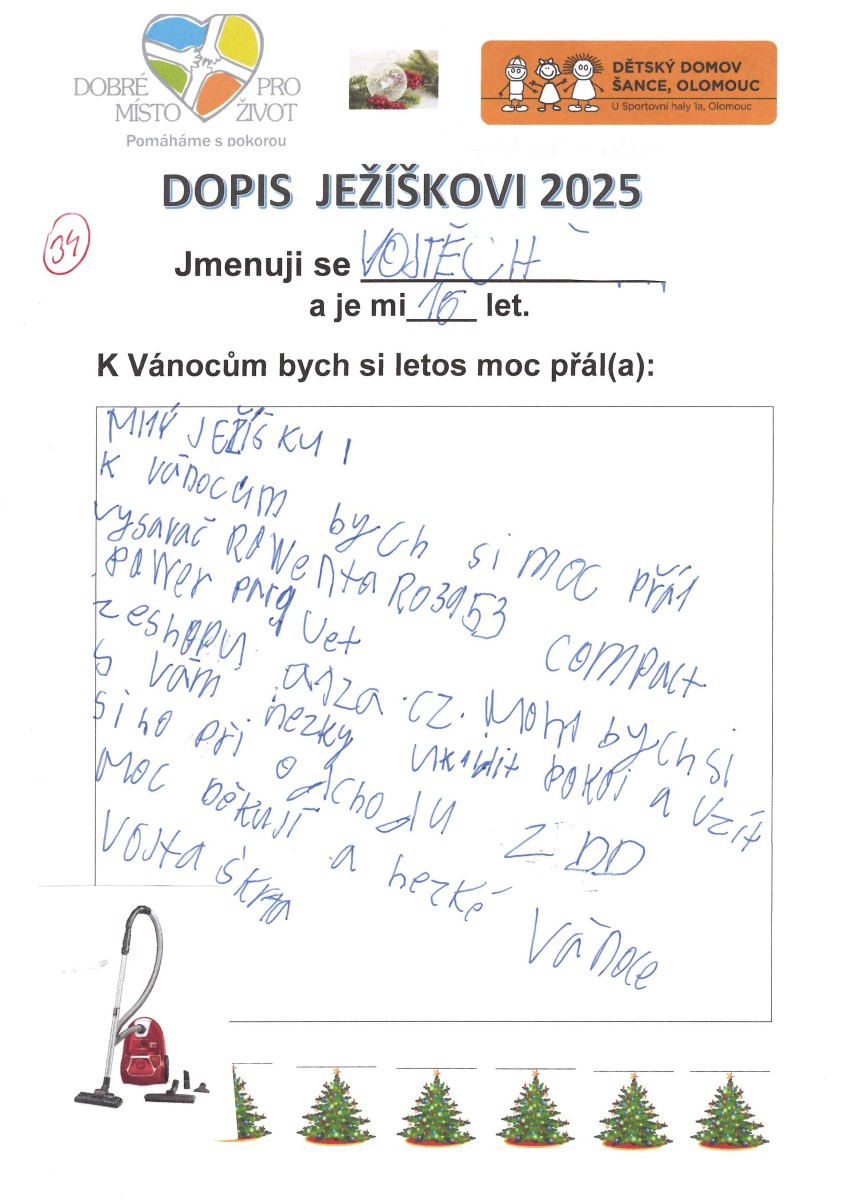 DOBRÉ PRO
MÍSTO ŽIVOT
Pomáháme s pokorou
DĚTSKÝ DOMOV
ŠANCE, OLOMOUC
U Sportovní haly 1a, Olomouc
DOPIS JEŽÍŠKOVI 2025
34
Jmenuji se VOJTĚCH
a je mi 16 let.
K Vánocům bych si letos moc přál(a):
MILÝ JEŽÍŠKU,
K vánocům bych si moc přál
vysavač ROWenta RO3953 compact
power
z eshopu alza.cz. Mohl bych si
s vám hezky uklidit pokoj a vzít
si ho při odchodu z DD
Moc Děkuji a hezké Vánoce
Vojta